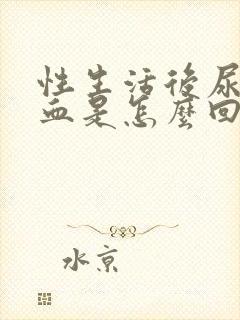 性生活後尿
血是怎麼回
水京